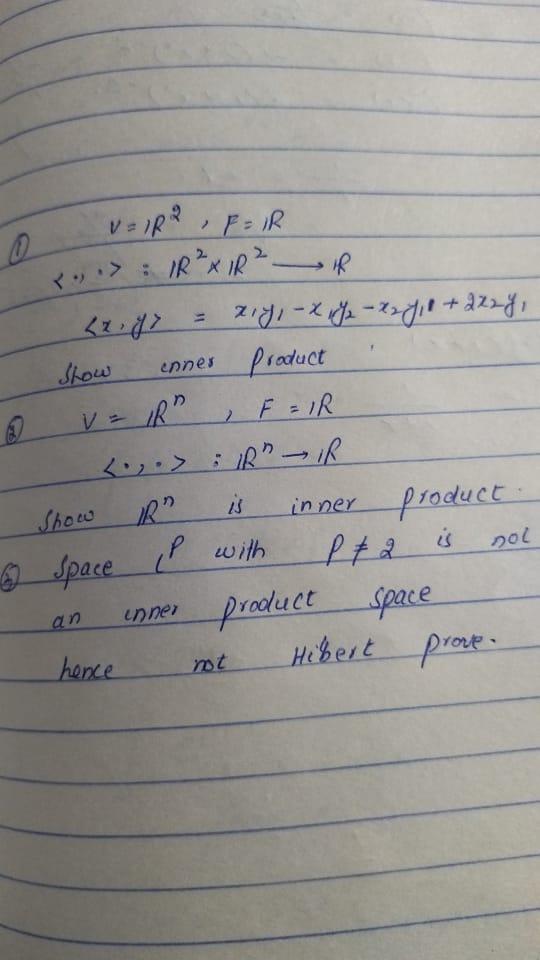 ① V = ℝ² , F = ℝ
<·,·> : ℝ² × ℝ² → ℝ
<x,y> = x₁y₁ - x₁y₂ - x₂y₁ + 2x₂y₁
Show inner Product
② V = ℝⁿ , F = ℝ
<·,·> : ℝⁿ → ℝ
Show ℝⁿ is inner product.
③ Space lᴾ with P ≠ 2 is not
an inner product space
hence not Hilbert prove.